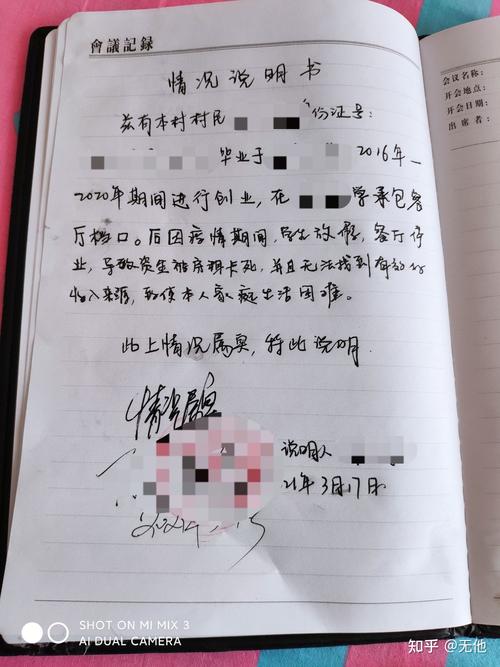 會議記録
情况说明书
兹有本村村民 份证号:
毕业于 2016年—
2020年期间进行创业,在 学承包餐
厅档口。后因疫情期间,学生放假,餐厅停
业,导致资金被房租卡死,并且无法找到有效的
收入来源,致使本人家庭生活困难。
以上情况属实,特此说明.
情况属实
说明人
21年3月17日
会议名称:
开会地点:
开会日期:
出席者:
SHOT ON MI MIX 3
AI DUAL CAMERA
知乎 @无他